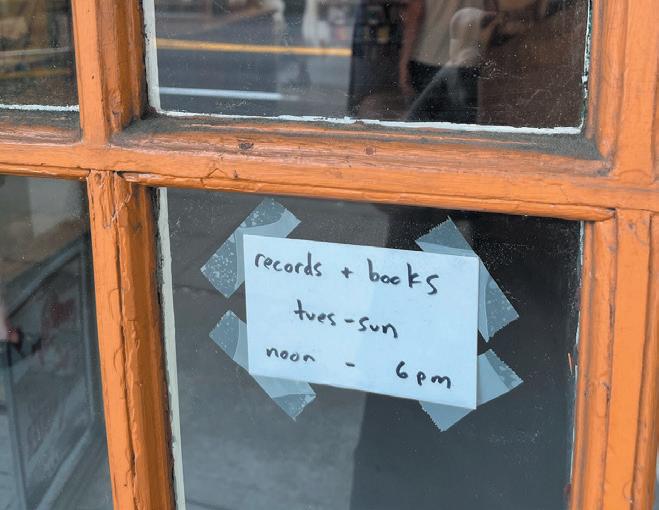 records + books
tues - sun
noon - 6 pm